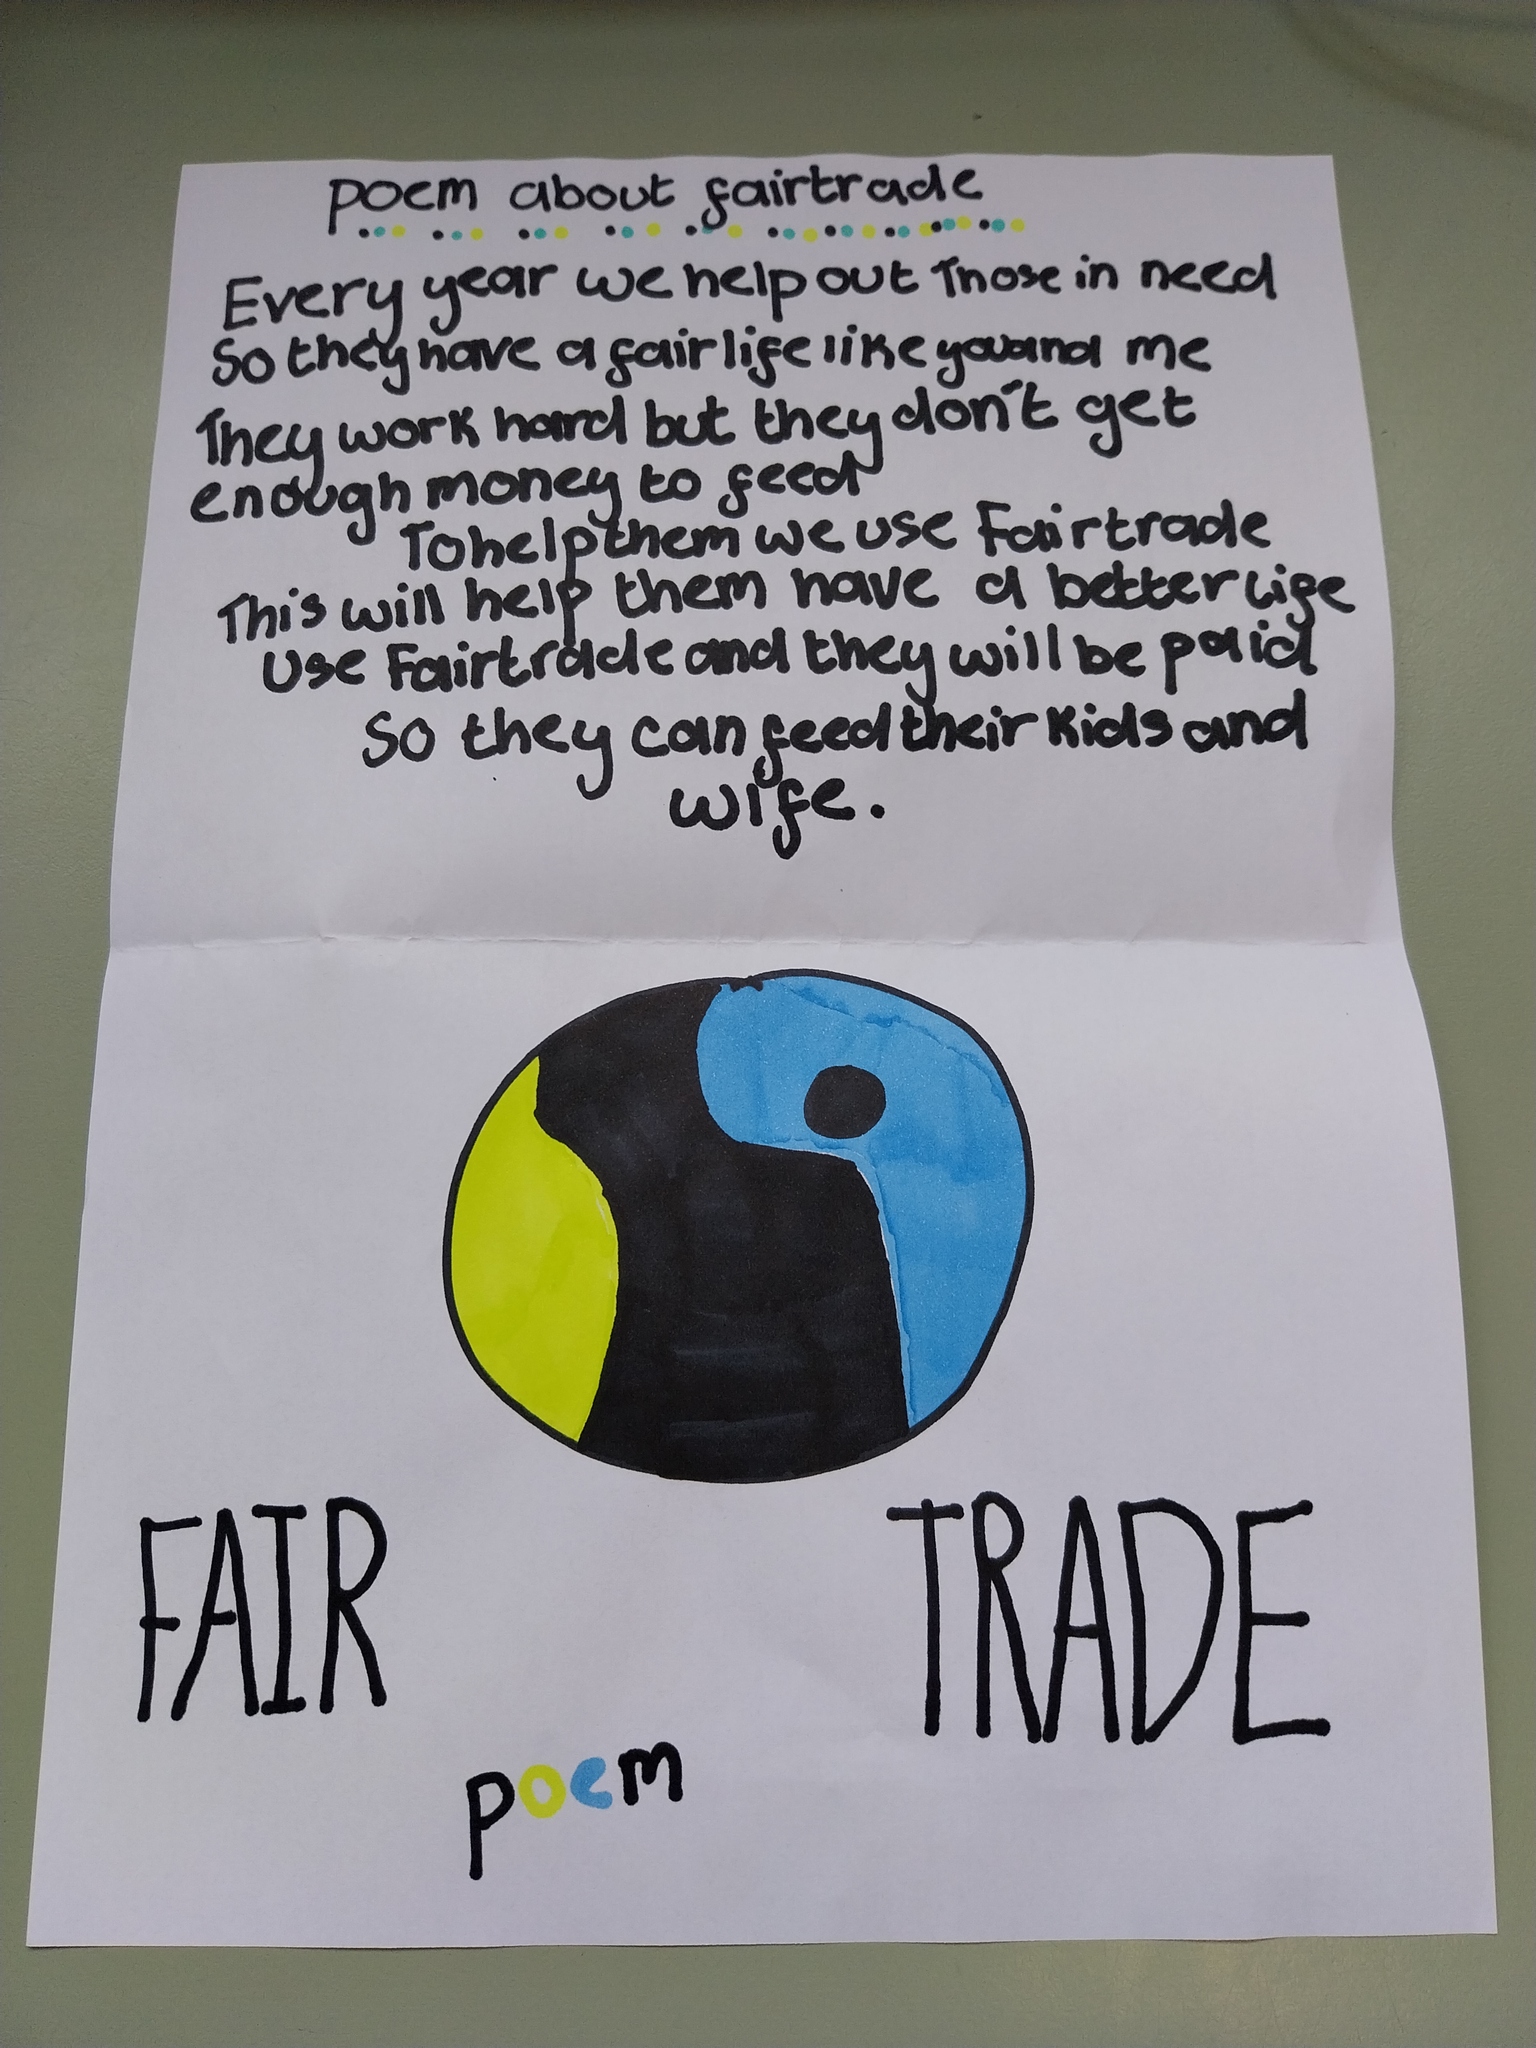 poem about fairtrade
Every year we help out Those in need
So they have a fair life like you and me
They work hard but they don't get
enough money to feed
To help them we use Fairtrade
This will help them have a better life
Use Fairtrade and they will be paid
So they can feed their kids and
wife.
FAIR TRADE
poem